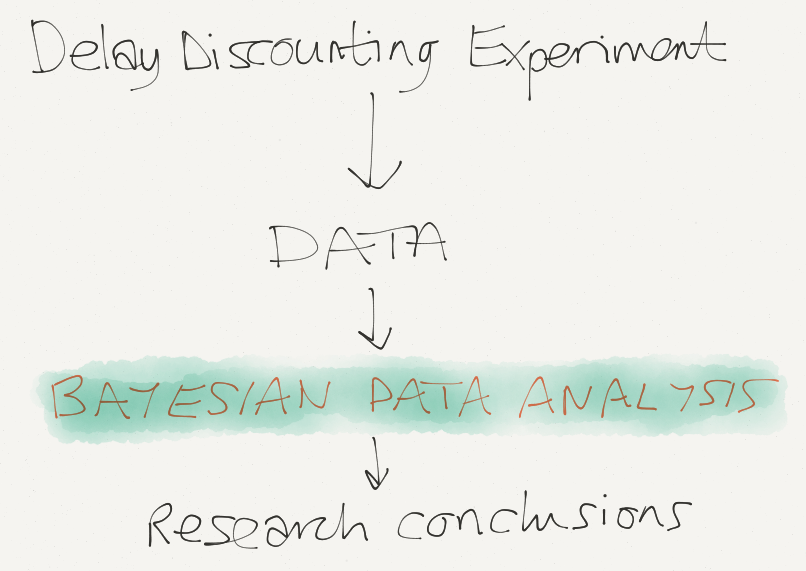 Delay Discounting Experiment
DATA
BAYESIAN DATA ANALYSIS
Research conclusions